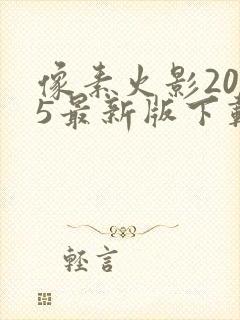 像素火影20
5最新版下载
轻言